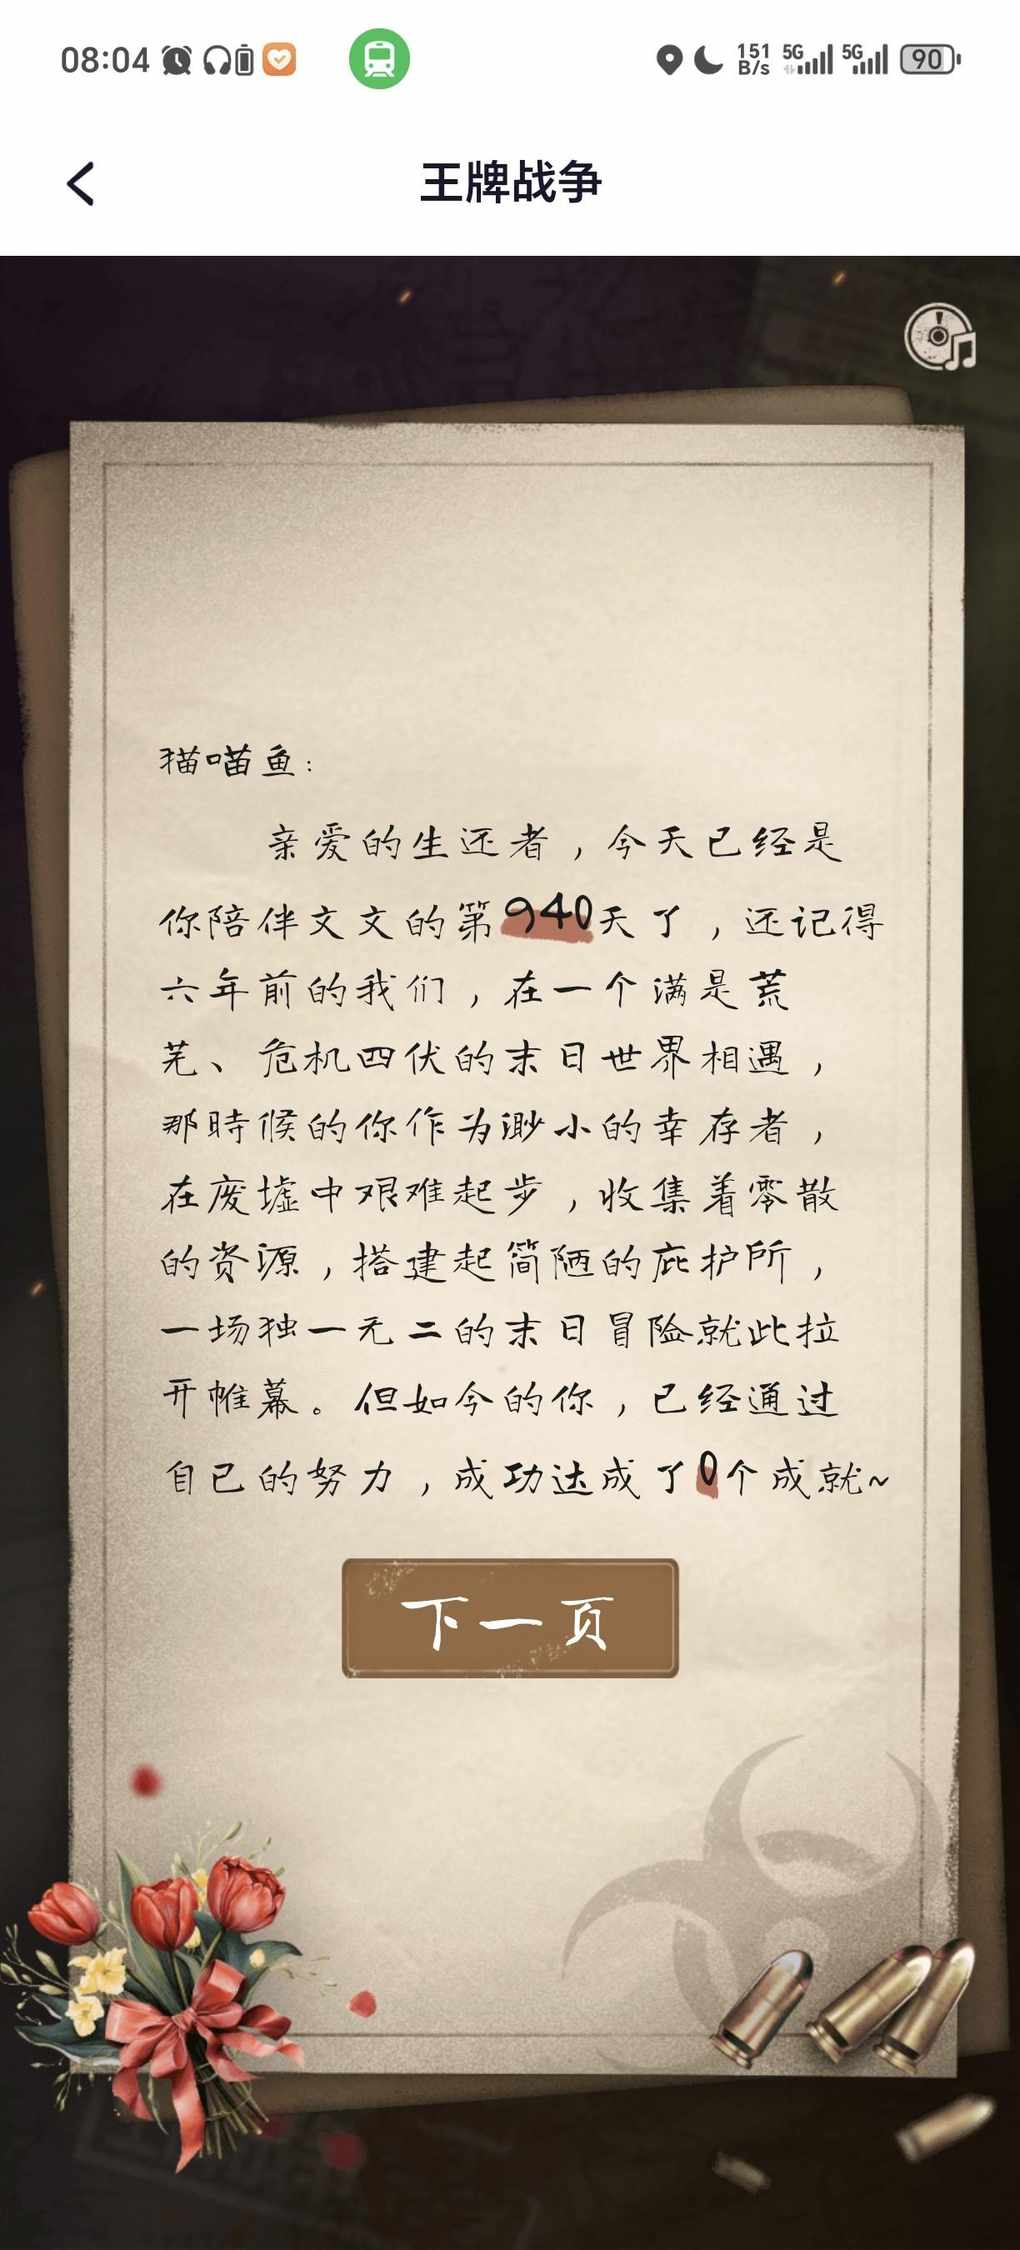 08:04
151 B/s 5G 5G 90
王牌战争
猫喵鱼:
亲爱的生还者，今天已经是
你陪伴文文的第940天了，还记得
六年前的我们，在一个满是荒
芜、危机四伏的末日世界相遇，
那時候的你作为渺小的幸存者，
在废墟中艰难起步，收集着零散
的资源，搭建起简陋的庇护所，
一场独一无二的末日冒险就此拉
开帷幕。但如今的你，已经通过
自己的努力，成功达成了0个成就~
下一页